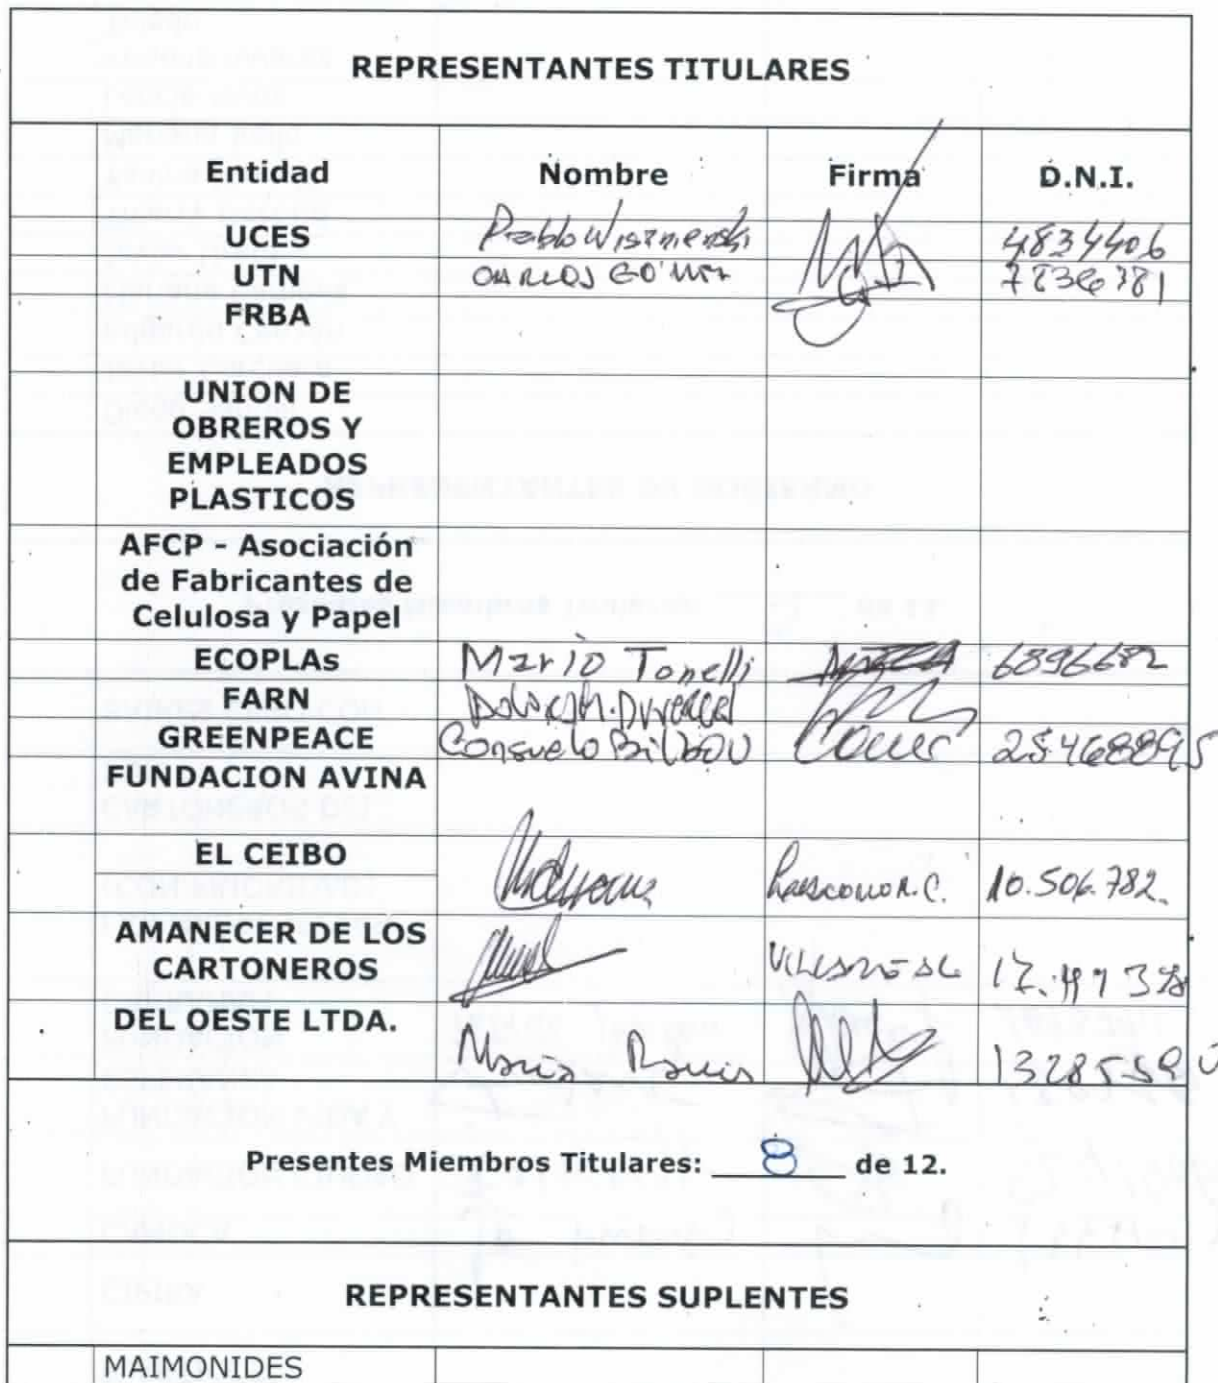 REPRESENTANTES TITULARES
Entidad Nombre Firma D.N.I.
UCES Pablo 4834406
UTN CARLOS GÓMEZ 7836781
FRBA
UNION DE
OBREROS Y
EMPLEADOS
PLASTICOS
AFCP - Asociación
de Fabricantes de
Celulosa y Papel
ECOPLAs Mario Tonelli 6896682
FARN
GREENPEACE Consuelo Bilbao 25468895
FUNDACION AVINA
EL CEIBO 10.506.782.
AMANECER DE LOS
CARTONEROS
DEL OESTE LTDA.
Presentes Miembros Titulares: 8 de 12.
REPRESENTANTES SUPLENTES
MAIMONIDES